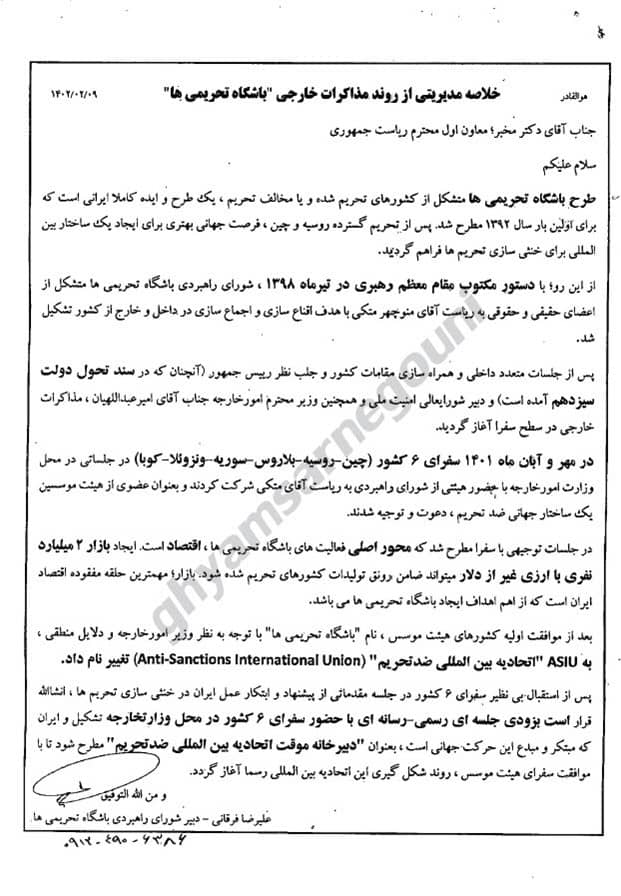 هوالقادر
خلاصه مدیریتی از روند مذاکرات خارجی "باشگاه تحریمی ها"
۱۴۰۲/۰۲/۰۹
جناب آقای دکتر مخبر؛ معاون اول محترم ریاست جمهوری
سلام علیکم
طرح باشگاه تحریمی ها متشکل از کشورهای تحریم شده و یا مخالف تحریم ، یک طرح و ایده کاملا ایرانی است که
برای اولین بار سال ۱۳۹۲ مطرح شد. پس از تحریم گسترده روسیه و چین ، فرصت جهانی بهتری برای ایجاد یک ساختار بین
المللی برای خنثی سازی تحریم ها فراهم گردید.
از این رو؛ با دستور مکتوب مقام معظم رهبری در تیرماه ۱۳۹۸ ، شورای راهبردی باشگاه تحریمی ها متشکل از
اعضای حقیقی و حقوقی به ریاست آقای منوچهر متکی با هدف اقناع سازی و اجماع سازی در داخل و خارج از کشور تشکیل
شد.
پس از جلسات متعدد داخلی و همراه سازی مقامات کشور و جلب نظر رییس جمهور (آنچنان که در سند تحول دولت
سیزدهم آمده است) و دبیر شورایعالی امنیت ملی و همچنین وزیر محترم امورخارجه جناب آقای امیرعبداللهیان ، مذاکرات
خارجی در سطح سفرا آغاز گردید.
در مهر و آبان ماه ۱۴۰۱ سفرای ۶ کشور (چین-روسیه-بلاروس-سوریه-ونزوئلا-کوبا) در جلساتی در محل
وزارت امورخارجه با حضور هیئتی از شورای راهبردی به ریاست آقای متکی شرکت کردند و بعنوان عضوی از هیئت موسسین
یک ساختار جهانی ضد تحریم ، دعوت و توجیه شدند.
در جلسات توجیهی با سفرا مطرح شد که محور اصلی فعالیت های باشگاه تحریمی ها ، اقتصاد است. ایجاد بازار ۲ میلیارد
نفری با ارزی غیر از دلار میتواند ضامن رونق تولیدات کشورهای تحریم شده شود. بازار؛ مهمترین حلقه مفقوده اقتصاد
ایران است که از اهم اهداف ایجاد باشگاه تحریمی ها می باشد.
بعد از موافقت اولیه کشورهای هیئت موسس ، نام "باشگاه تحریمی ها" با توجه به نظر وزیر امورخارجه و دلایل منطقی ،
به ASIU "اتحادیه بین المللی ضدتحریم" (Anti-Sanctions International Union) تغییر نام داد.
پس از استقبال بی نظیر سفرای ۶ کشور در جلسه مقدماتی از پیشنهاد و ابتکار عمل ایران در خنثی سازی تحریم ها ، انشاالله
قرار است بزودی جلسه ای رسمی-رسانه ای با حضور سفرای ۶ کشور در محل وزارتخارجه تشکیل و ایران
که مبتکر و مبدع این حرکت جهانی است ، بعنوان "دبیرخانه موقت اتحادیه بین المللی ضدتحریم" مطرح شود تا با
موافقت سفرای هیئت موسس ، روند شکل گیری این اتحادیه بین المللی رسما آغاز گردد.
و من الله التوفیق
علیرضا فرقانی - دبیر شورای راهبردی باشگاه تحریمی ها
۰۹۱۲-۴۹۰-۶۳۸۶
ghyamsarnegouni